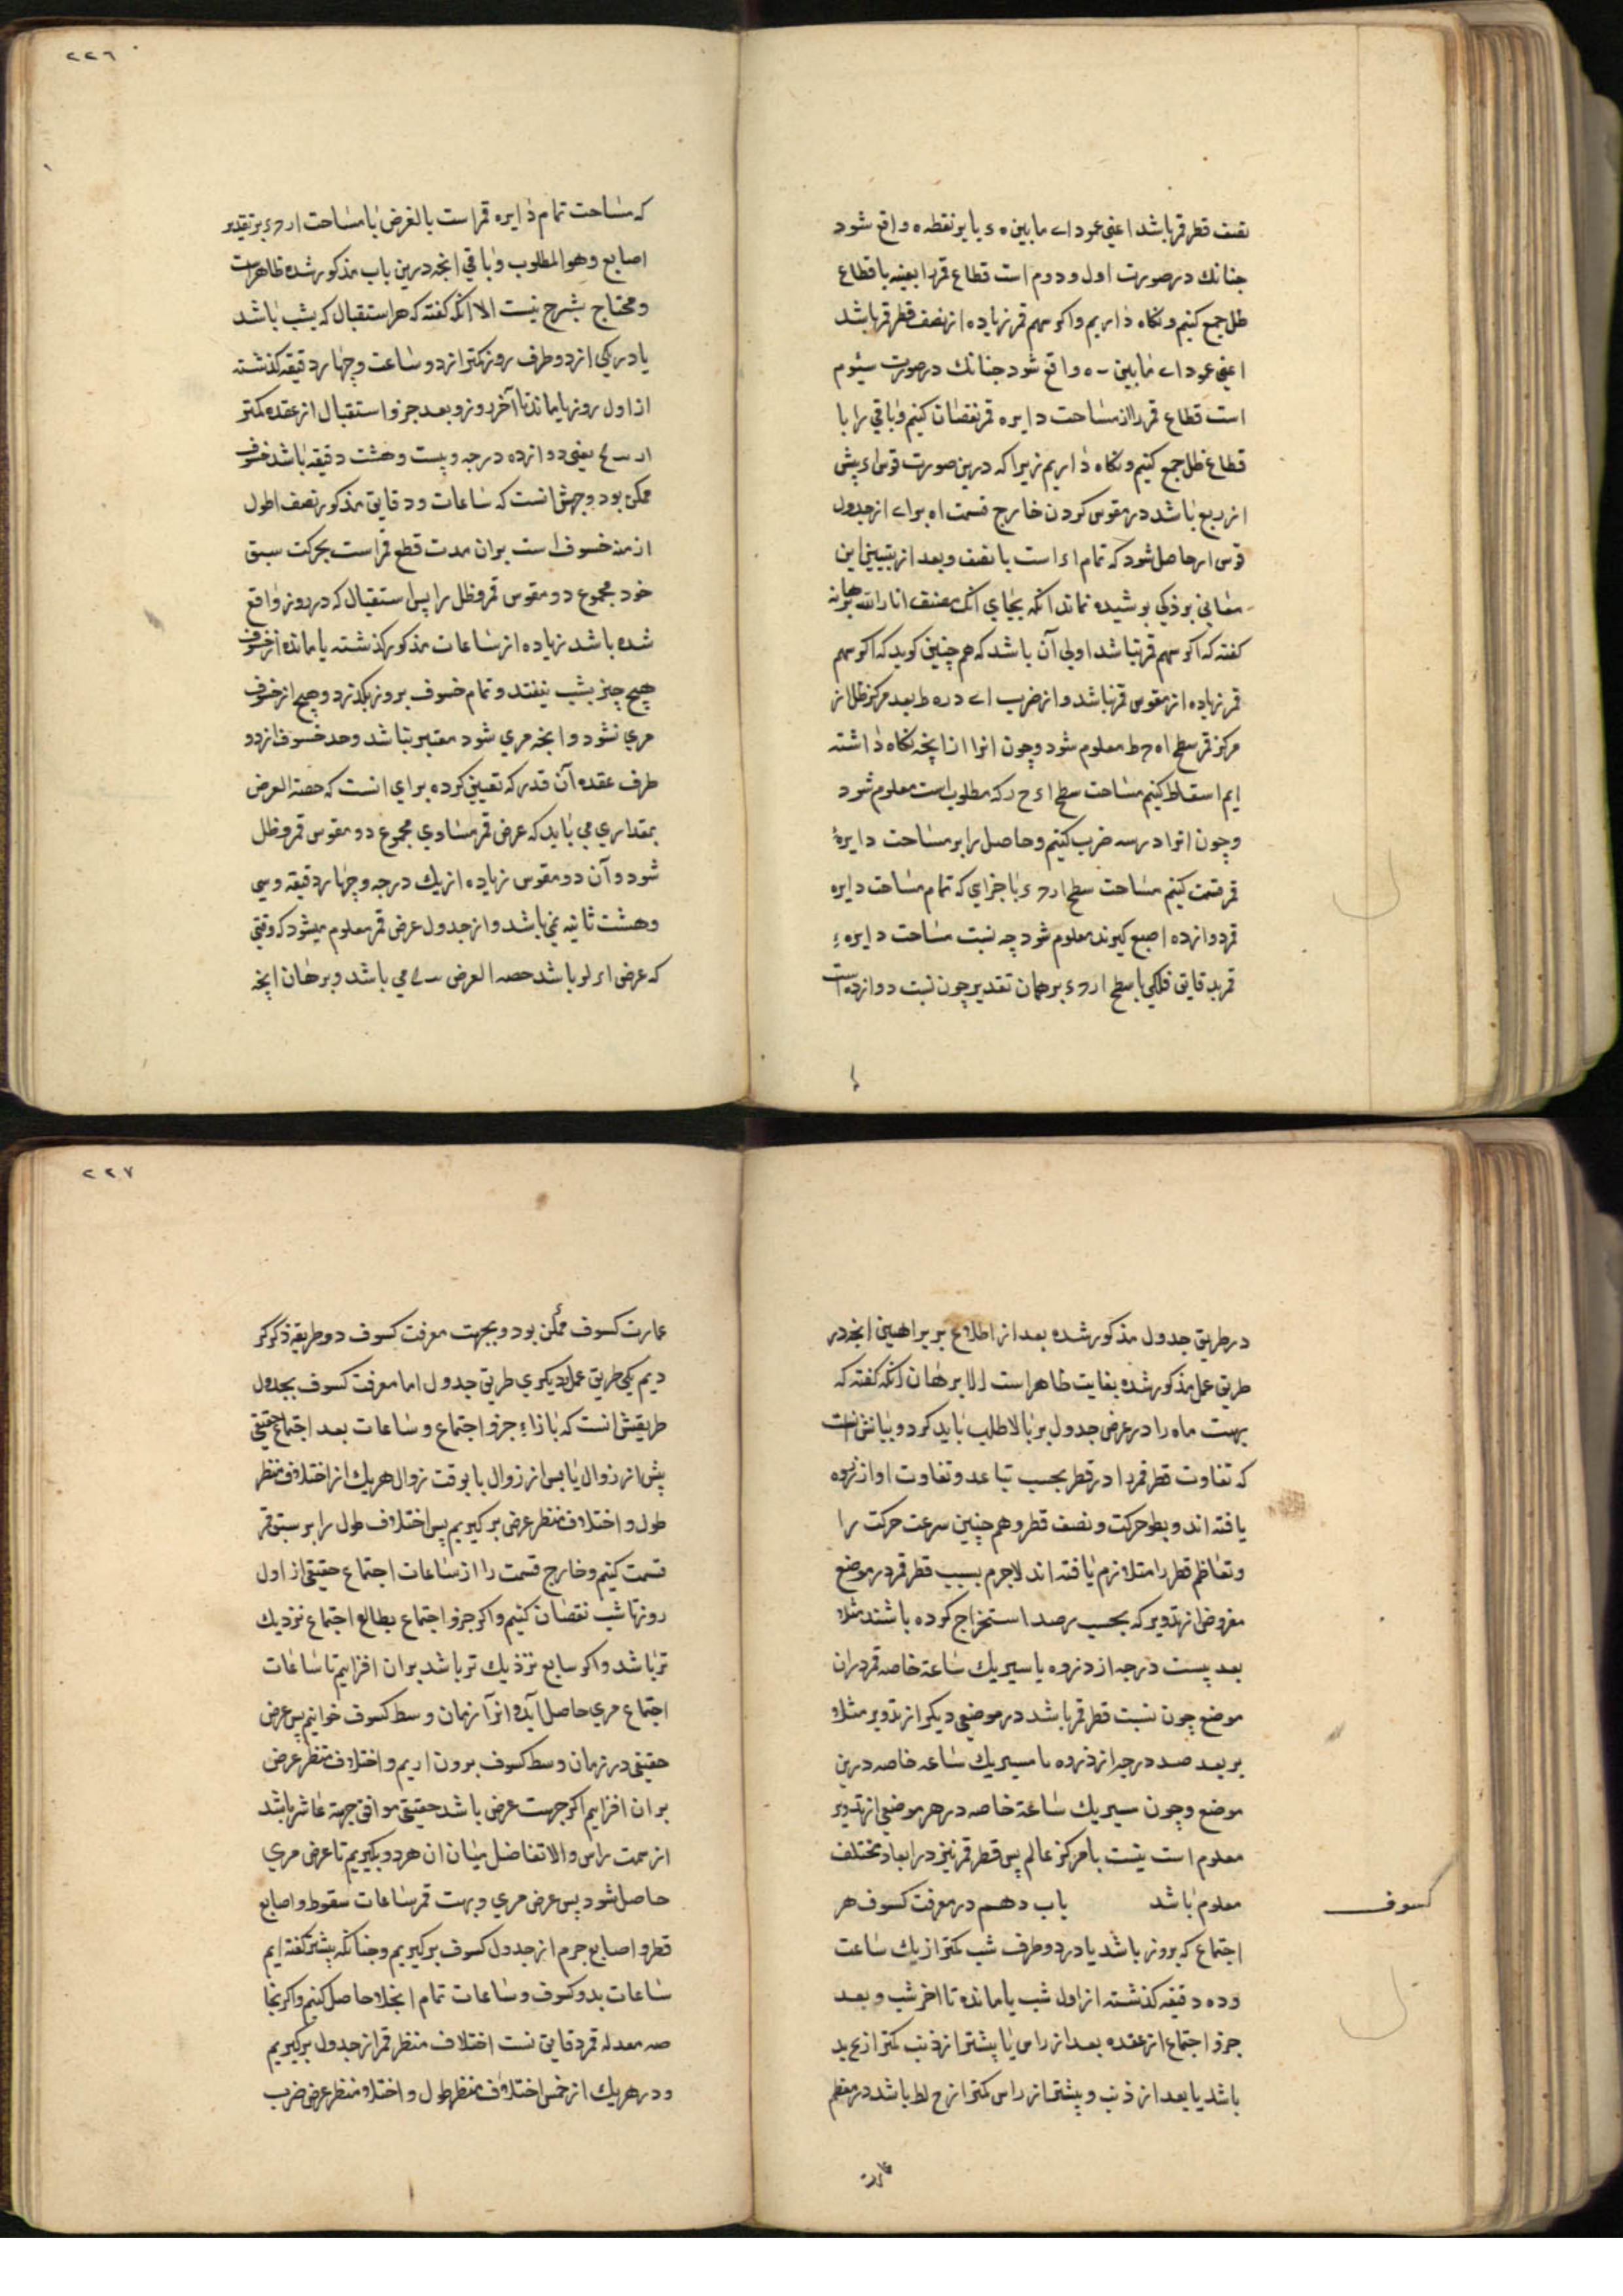 نصف قطر قمر باشد اعنی عمود اے مابین ه ء یا بر نقطه ه واقع شود
جنانك در صورت اول و دوم است قطاع قمر را بعینه با قطاع
ظل جمع کنیم و نکاه داریم و اکر سهم قمر زیاده از نصف قطر قمر باشد
اعنی عمود اے مابین ه واقع شود جنانك در صورت سیُوم
است قطاع قمر را از مساحت دایره قمر نقصان کنیم و باقی را با
قطاع ظل جمع کنیم و نکاه داریم زیرا که درین صورت قوس اء بیش
از ربع باشد در مقوس کردن خارج قسمت اه بر اے از جدول
قوس ار حاصل شود که تمام اء است با نصف و بعد از تبیین این
معانی بر ذکی بوشیده نماند انکه بجای انك مصنف انار الله برهانه
کفته که اکر سهم قمر نباشد اولی آن باشد که هم چنین کوید که اکر سهم
قمر زیاده از مقوس قمر نباشد و از ضرب اے در ه ط بعد مرکز ظل از
مرکز قمر سطح اه ح ط معلوم شود و چون انرا از انچه نکاه داشته
ایم اسقاط کنیم مساحت سطح اء ح ر که مطلوب است معلوم شود
و چون انرا در سه ضرب کنیم و حاصل را بر مساحت دایرهٔ
قمر قسمت کنیم مساحت سطح ار ح ء با جزای که تمام مساحت دایره
قمر دوازده اصبع کیرند معلوم شود چه نسبت مساحت دایرهء
قمر بدقایق فلکی با سطح ار ح ء بر همان تقدیر چون نسبت دوازده است
٢٢٦
که مساحت تمام دایره قمر است بالفرض با مساحت ار ح ء بر تقدیر
اصابع و هو المطلوب و باقی انچه درین باب مذکور شده ظاهر است
و محتاج بشرح نیست الا انکه کفته که هر استقبال که بشب باشد
یا در یکی از دو طرف روز کمتر از دو ساعت و چهار دقیقه کذشته
از اول روز یا مانده تا آخر روز و بعد جزو استقبال از عقده کمتر
از یعنی دوازده درجه و بیست و هشت دقیقه باشد خسوف
ممکن بود وجهش انست که ساعات و دقایق مذکور نصف اطول
ازمنه خسوف است بر ان مدت قطع قمر است بحرکت سبق
خود مجموع دو مقوس قمر و ظل را پس استقبال که در روز واقع
شده باشد زیاده از ساعات مذکور کذشته یا مانده از خسوف
هیچ چیز بشب نیفتد و تمام خسوف بروز بکذرد و هیچ از خسوف
مری نشود و انچه مری شود معتبر نباشد و حد خسوف از دو
طرف عقده آن قدر که تعیین کرده برای انست که حصة العرض
بمقداری می باید که عرض قمر مساوی مجموع دو مقوس قمر و ظل
شود و آن دو مقوس زیاده از یك درجه و چهار دقیقه و سی
و هشت ثانیه نمی باشد و از جدول عرض قمر معلوم میشود که وقتی
که عرض باشد حصه العرض می باشد و برهان انچه
در طریق جدول مذکور شده بعد از اطلاع بر براهین انچه در
طریق عمل مذکور شده بغایت ظاهر است الا برهان انکه کفته که
بهت ماه را در عرض جدول بر بالا طلب باید کرد و بیانش انست
که تفاوت قطر قمر را در قطر بحسب تباعد و تفاوت او از ذروه
یافته اند و بطو حرکت و نصف قطر و هم چنین سرعت حرکت را
و تعاظم قطر را متلازم یافته اند لاجرم بسبب قطر قمر در موضع
مفروض از تدویر که بحسب رصد استخراج کرده باشند مثلا
بعد بیست درجه از ذروه با سیر یك ساعة خاصه قمر دران
موضع چون نسبت قطر قمر باشد در موضعی دیکر از تدویر مثلا
بر بعد صد درجه از ذروه با مسیر یك ساعه خاصه درین
موضع و چون سیر یك ساعة خاصه در هر موضعی از تدویر
معلوم است نیست با مرکز عالم پس قطر قمر نیز در ابعاد مختلف
معلوم باشد باب دهم در معرفت کسوف هر
کسوف
اجتماع که بروز باشد یا در دو طرف شب کمتر از یك ساعت
و ده دقیقه کذشته از اول شب یا مانده تا اخر شب و بعد
جزو اجتماع از عقده بعد از راس یا پیشتر از ذنب کمتر از
باشد یا بعد از ذنب و پیشتر از راس کمتر از ح لط باشد در معظم
عمارت
٢٢٧
عمارت کسوف ممکن بود و بجهت معرفت کسوف دو طریقه ذکر کر
دیم یکی طریق عمل دیکری طریق جدول اما معرفت کسوف بجدول
طریقش انست که بازاء جزو اجتماع و ساعات بعد اجتماع حقیقی
پیش از زوال یا پس از زوال یا بوقت زوال هر یك از اختلاف منظر
طول و اختلاف منظر عرض بر کیریم پس اختلاف طول را بر سبق قمر
قسمت کنیم و خارج قسمت را از ساعات اجتماع حقیقی از اول
روز تا شب نقصان کنیم و اکر جزو اجتماع بطالع اجتماع نزدیك
تر باشد و اکر سابع نزدیك تر باشد بر ان افزاییم تا ساعات
اجتماع مری حاصل آید و انرا زمان وسط کسوف خوانیم پس عرض
حقیقی در زمان وسط کسوف برون اریم و اختلاف منظر عرض
بر ان افزاییم اکر جهت عرض باشد حقیقی موافق جهة عاشر باشد
از سمت راس و الا تفاضل میان ان هر دو بکیریم تا عرض مری
حاصل شود پس عرض مری و بهت قمر ساعات سقوط و اصابع
قطر و اصابع جرم از جدول کسوف بر کیریم و چنانکه پیشتر کفته ایم
ساعات بدو کسوف و ساعات تمام انجلا حاصل کنیم و اکر بخا
صه معدله قمر دقایق نسب اختلاف منظر قمر از جدول بر کیریم
و در هر یك از خمس اختلاف منظر طول و اختلاف منظر عرض ضرب